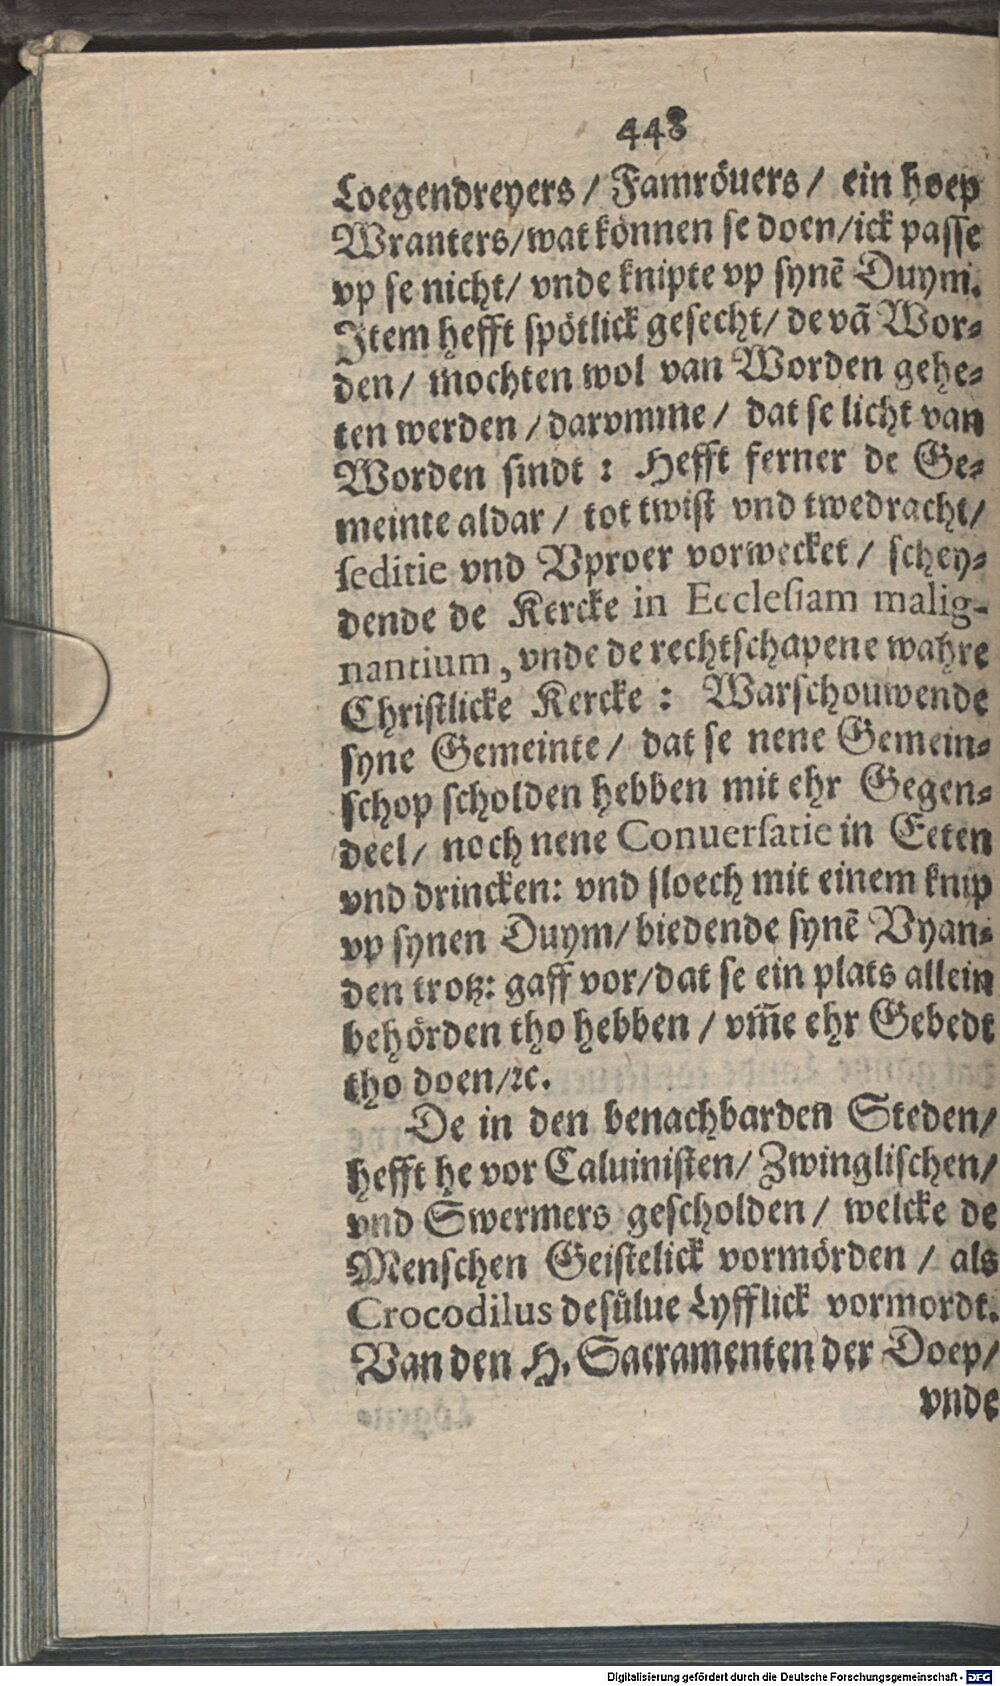 448
Loegendreyers / Famröuers / ein hoep
Wranters/wat können se doen/ick passe
vp se nicht/ vnde knipte vp synē Duym.
Item hefft spötlick gesecht/ de vā Wor-
den/ mochten wol van Worden gehe-
ten werden / darvmme / dat se licht van
Worden sindt : Hefft ferner de Ge-
meinte aldar / tot twist vnd twedracht/
seditie vnd Vproer vorwecket / schey-
dende de Kercke in Ecclesiam malig-
nantium, vnde de rechtschapene wahre
Christlicke Kercke : Warschouwende
syne Gemeinte/ dat se nene Gemein-
schop scholden hebben mit ehr Gegen-
deel/ noch nene Conuersatie in Eeten
vnd drincken: vnd sloech mit einem knip
vp synen Duym/biedende synē Vyan-
den trotz: gaff vor/dat se ein plats allein
behörden tho hebben / vm̄e ehr Gebedt
tho doen/ꝛc.
De in den benachbarden Steden/
hefft he vor Caluinisten/ Zwinglischen/
vnd Swermers gescholden / welcke de
Menschen Geistelick vormörden / als
Crocodilus desülue Lyfflick vormordt.
Van den H. Sacramenten der Doep/
vnde
Digitalisierung gefördert durch die Deutsche Forschungsgemeinschaft - DFG